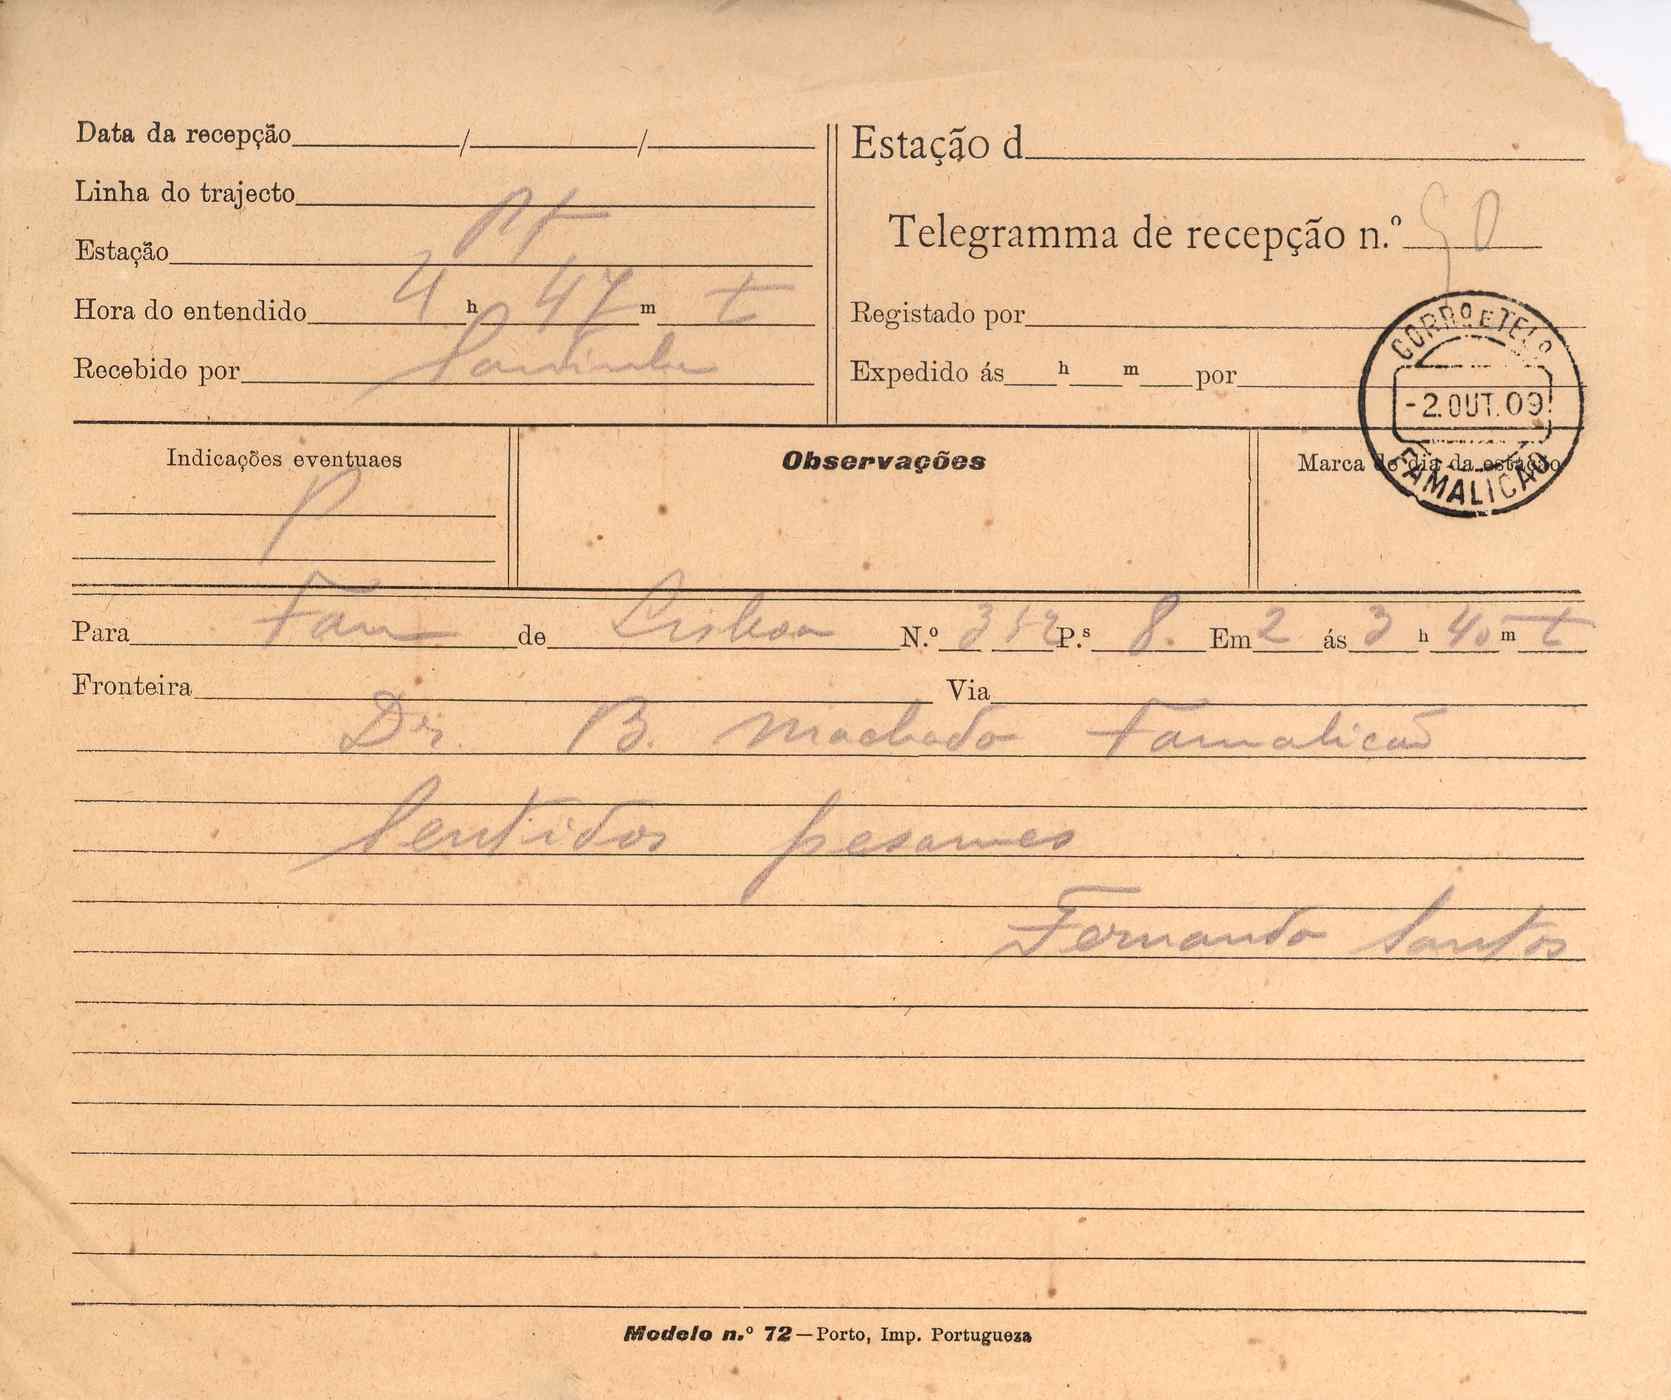 Data da recepção / /
Linha do trajecto
Estação Pt
Hora do entendido 4 h 47 m t
Recebido por
Estação d
Telegramma de recepção n.º 90
Registado por
Expedido ás h m por
CORRO E TELO
-2.OUT.09
FAMALICÃO
Indicações eventuaes
P
Observações
Marca do dia da estação
Para Fam de Lisboa N.º 312 P.s 8. Em 2 ás 3 h 40 m t
Fronteira Via
Dr. B. Machado Famalicão
Sentidos pesames
Fernando Santos
Modelo n.º 72—Porto, Imp. Portugueza